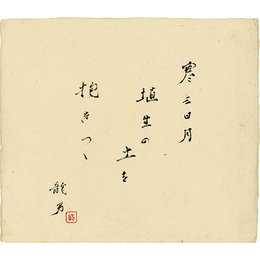 寒三日月
埴生の土を
抱きつゝ
龍男